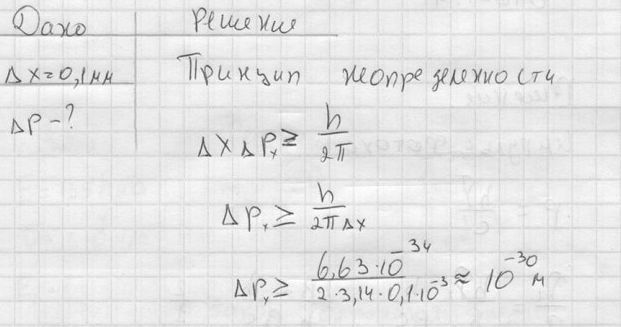 Дано Решение
Δx=0,1мм Принцип неопределенности
ΔP-?
Δx ΔPₓ ≥ h/2π
ΔPₓ ≥ h/2πΔx
ΔPₓ ≥ 6,63·10⁻³⁴/2·3,14·0,1·10⁻³ ≈ 10⁻³⁰ м